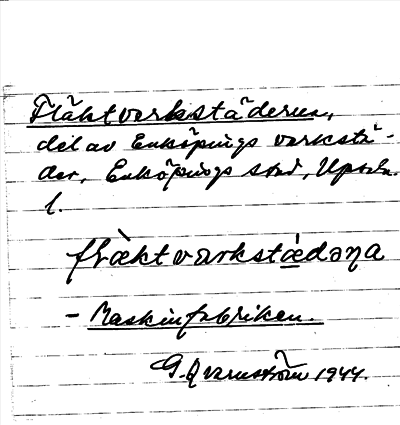 Fläktverkstäderna,
del av Enköpings verkstä-
der, Enköpings stad, Upsala
l.
flὰktvarkstǽdəɳa
- Maskinfabriken.
G. Qvarnström 1944.